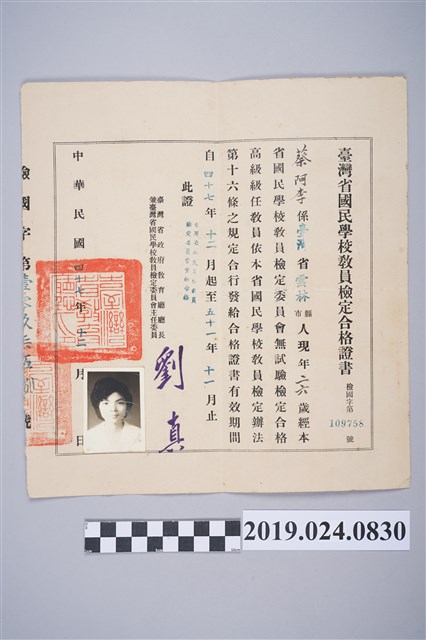 臺灣省國民學校教員檢定合格證書
檢國字第109758號
蔡阿李係臺灣省雲林縣市人現年二六歲經本
省國民學校教員檢定委員會無試驗檢定合格
高級級任教員依本省國民學校教員檢定辦法
第十六條之規定合行發給合格證書有效期間
自四十七年十二月起至五十一年十一月止
此證
臺灣省政府教育廳廳長
兼臺灣省國民學校教員檢定委員會主任委員
劉真
中華民國四十七年十二月日
檢國字第
號
2019.024.0830